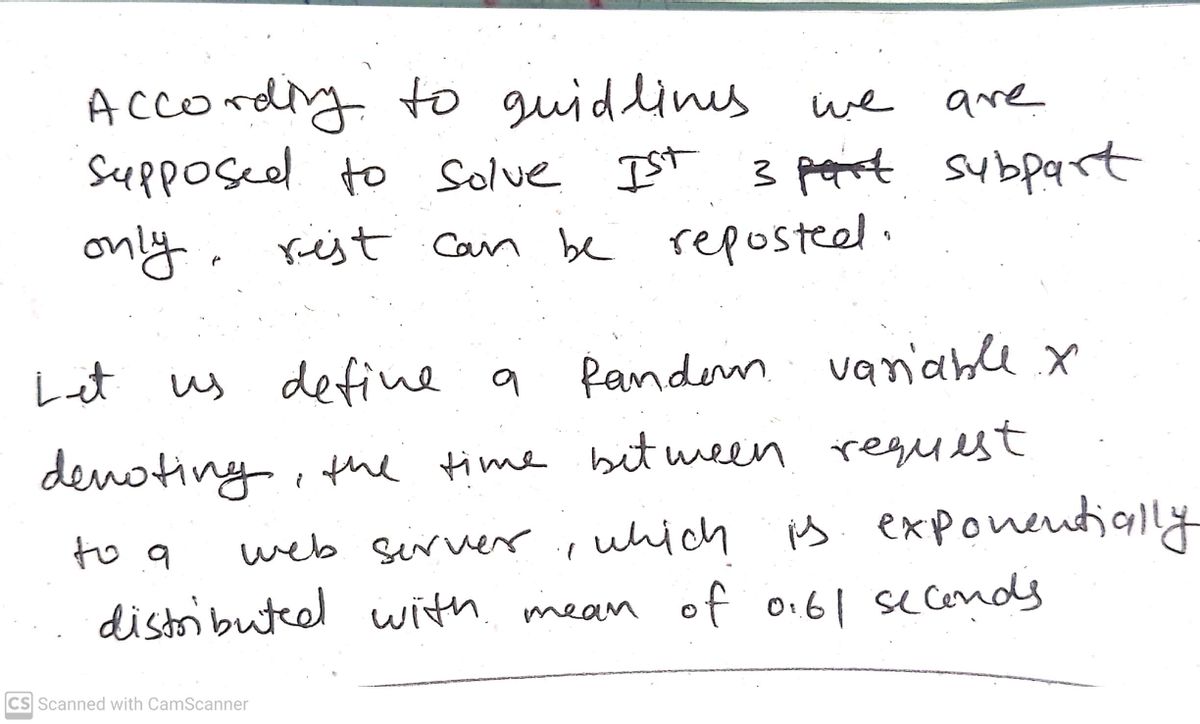 According to guidlines we are
supposed to solve Ist 3 part subpart
only. rest can be reposted.
Let us define a Random variable x
denoting, the time between request
to a web server, which is exponentially
distributed with mean of 0.61 seconds
CS Scanned with CamScanner